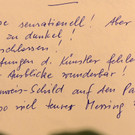 sensationell! Aber
zu dunkel!
schlossen!
fungen d. Künstler fehlen
Ausblicke wunderbar!
weis-Schild auf den Pa
so viel teurer Messing